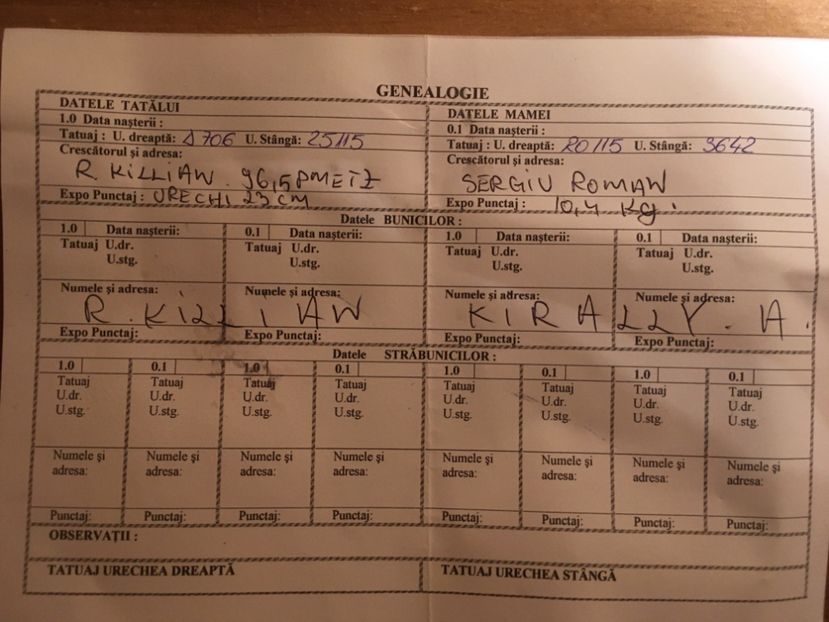 GENEALOGIE
DATELE TATĂLUI
1.0 Data nașterii :
Tatuaj : U. dreaptă: Δ706 U. Stângă: 25115
Crescătorul și adresa:
R. KILLIAN 96,5 PMETZ
Expo Punctaj : URECHI 23 CM
DATELE MAMEI
0.1 Data nașterii :
Tatuaj : U. dreaptă: RO115 U. Stângă: 3642
Crescătorul și adresa:
SERGIU ROMAN
Expo Punctaj : 10,4 Kg.
Datele BUNICILOR :
1.0 Data nașterii: 0.1 Data nașterii: 1.0 Data nașterii: 0.1 Data nașterii:
Tatuaj U.dr. Tatuaj U.dr. Tatuaj U.dr. Tatuaj U.dr.
U.stg. U.stg. U.stg. U.stg.
Numele și adresa: Numele și adresa: Numele și adresa: Numele și adresa:
R. KILLIAN KIRALLY. A.
Expo Punctaj: Expo Punctaj: Expo Punctaj: Expo Punctaj:
Datele STRĂBUNICILOR :
1.0 0.1 1.0 0.1 1.0 0.1 1.0 0.1
Tatuaj Tatuaj Tatuaj Tatuaj Tatuaj Tatuaj Tatuaj Tatuaj
U.dr. U.dr. U.dr. U.dr. U.dr. U.dr. U.dr. U.dr.
U.stg. U.stg. U.stg. U.stg. U.stg. U.stg. U.stg. U.stg.
Numele și Numele și Numele și Numele și Numele și Numele și Numele și Numele și
adresa: adresa: adresa: adresa: adresa: adresa: adresa: adresa:
Punctaj: Punctaj: Punctaj: Punctaj: Punctaj: Punctaj: Punctaj: Punctaj:
OBSERVAȚII :
TATUAJ URECHEA DREAPTĂ TATUAJ URECHEA STÂNGĂ